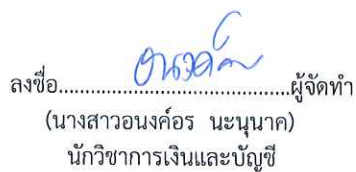 ลงชื่อ..........................................ผู้จัดทำ
(นางสาวอนงค์อร นะนุนาค)
นักวิชาการเงินและบัญชี